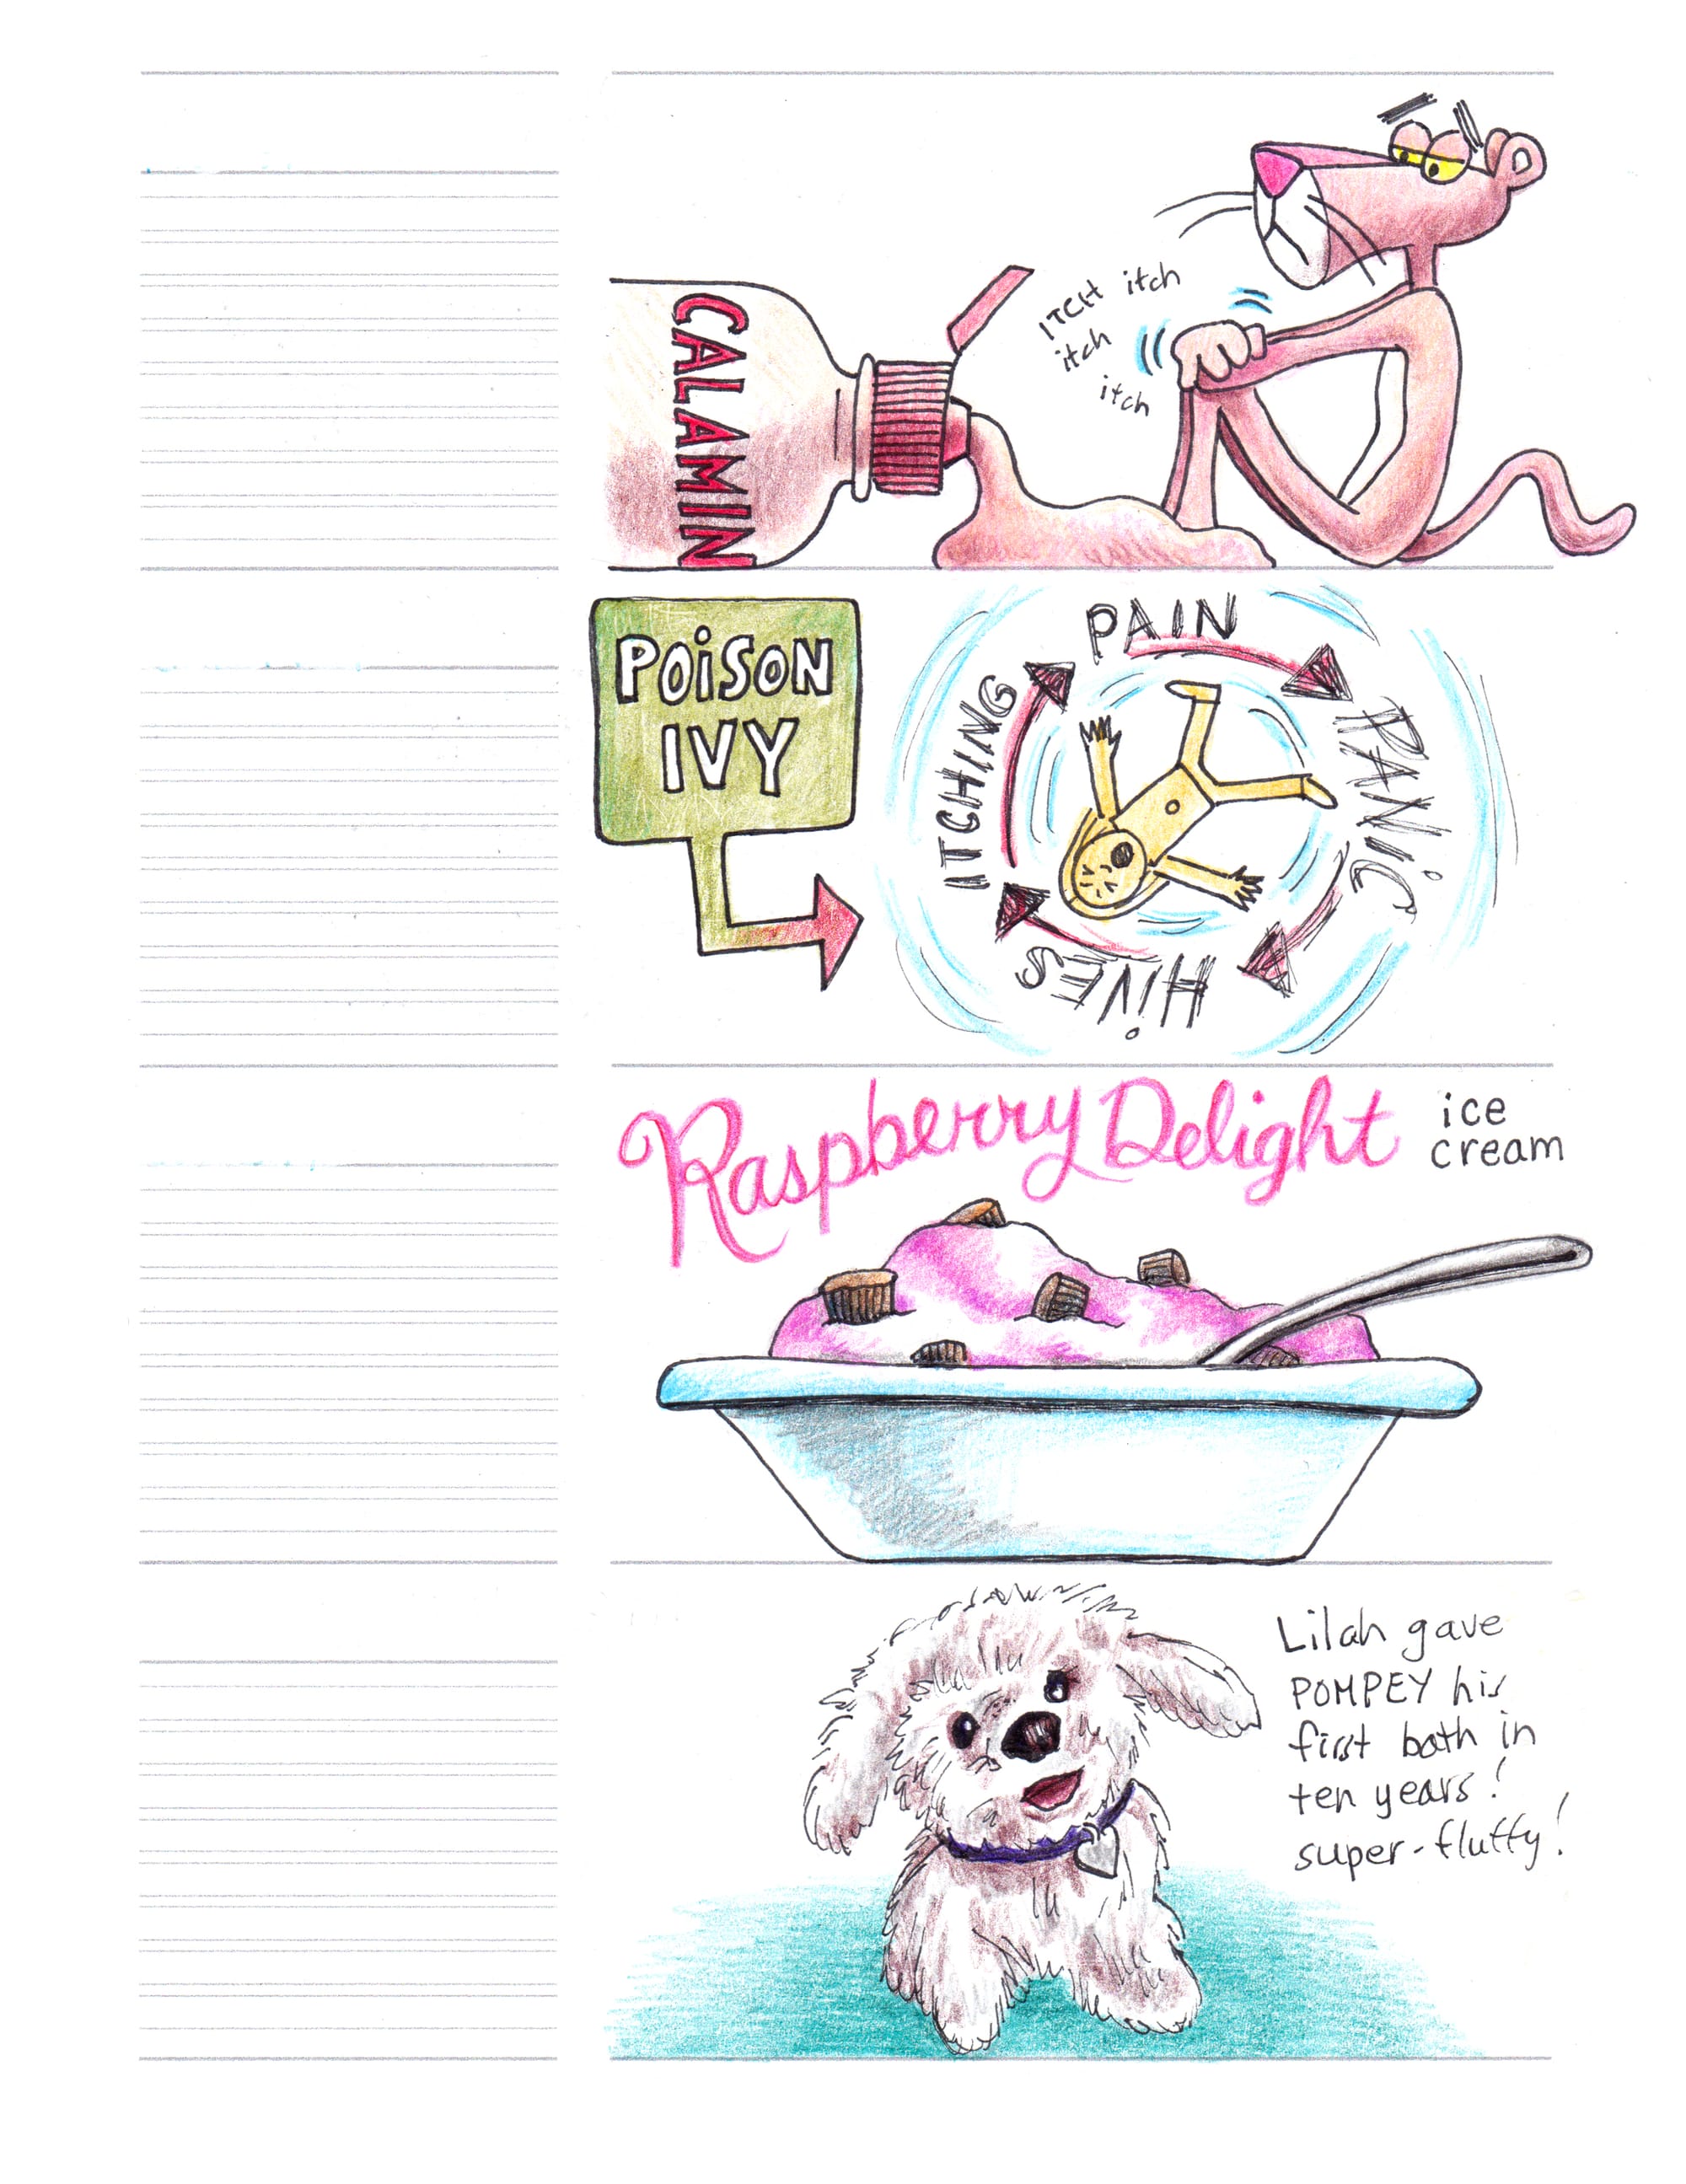 CALAMIN
ITCH itch
itch
itch
POiSON
IVY
PAIN
PANiC
HiVES
ITCHING
Raspberry Delight
ice
cream
Lilah gave
POMPEY his
first bath in
ten years!
super-fluffy!